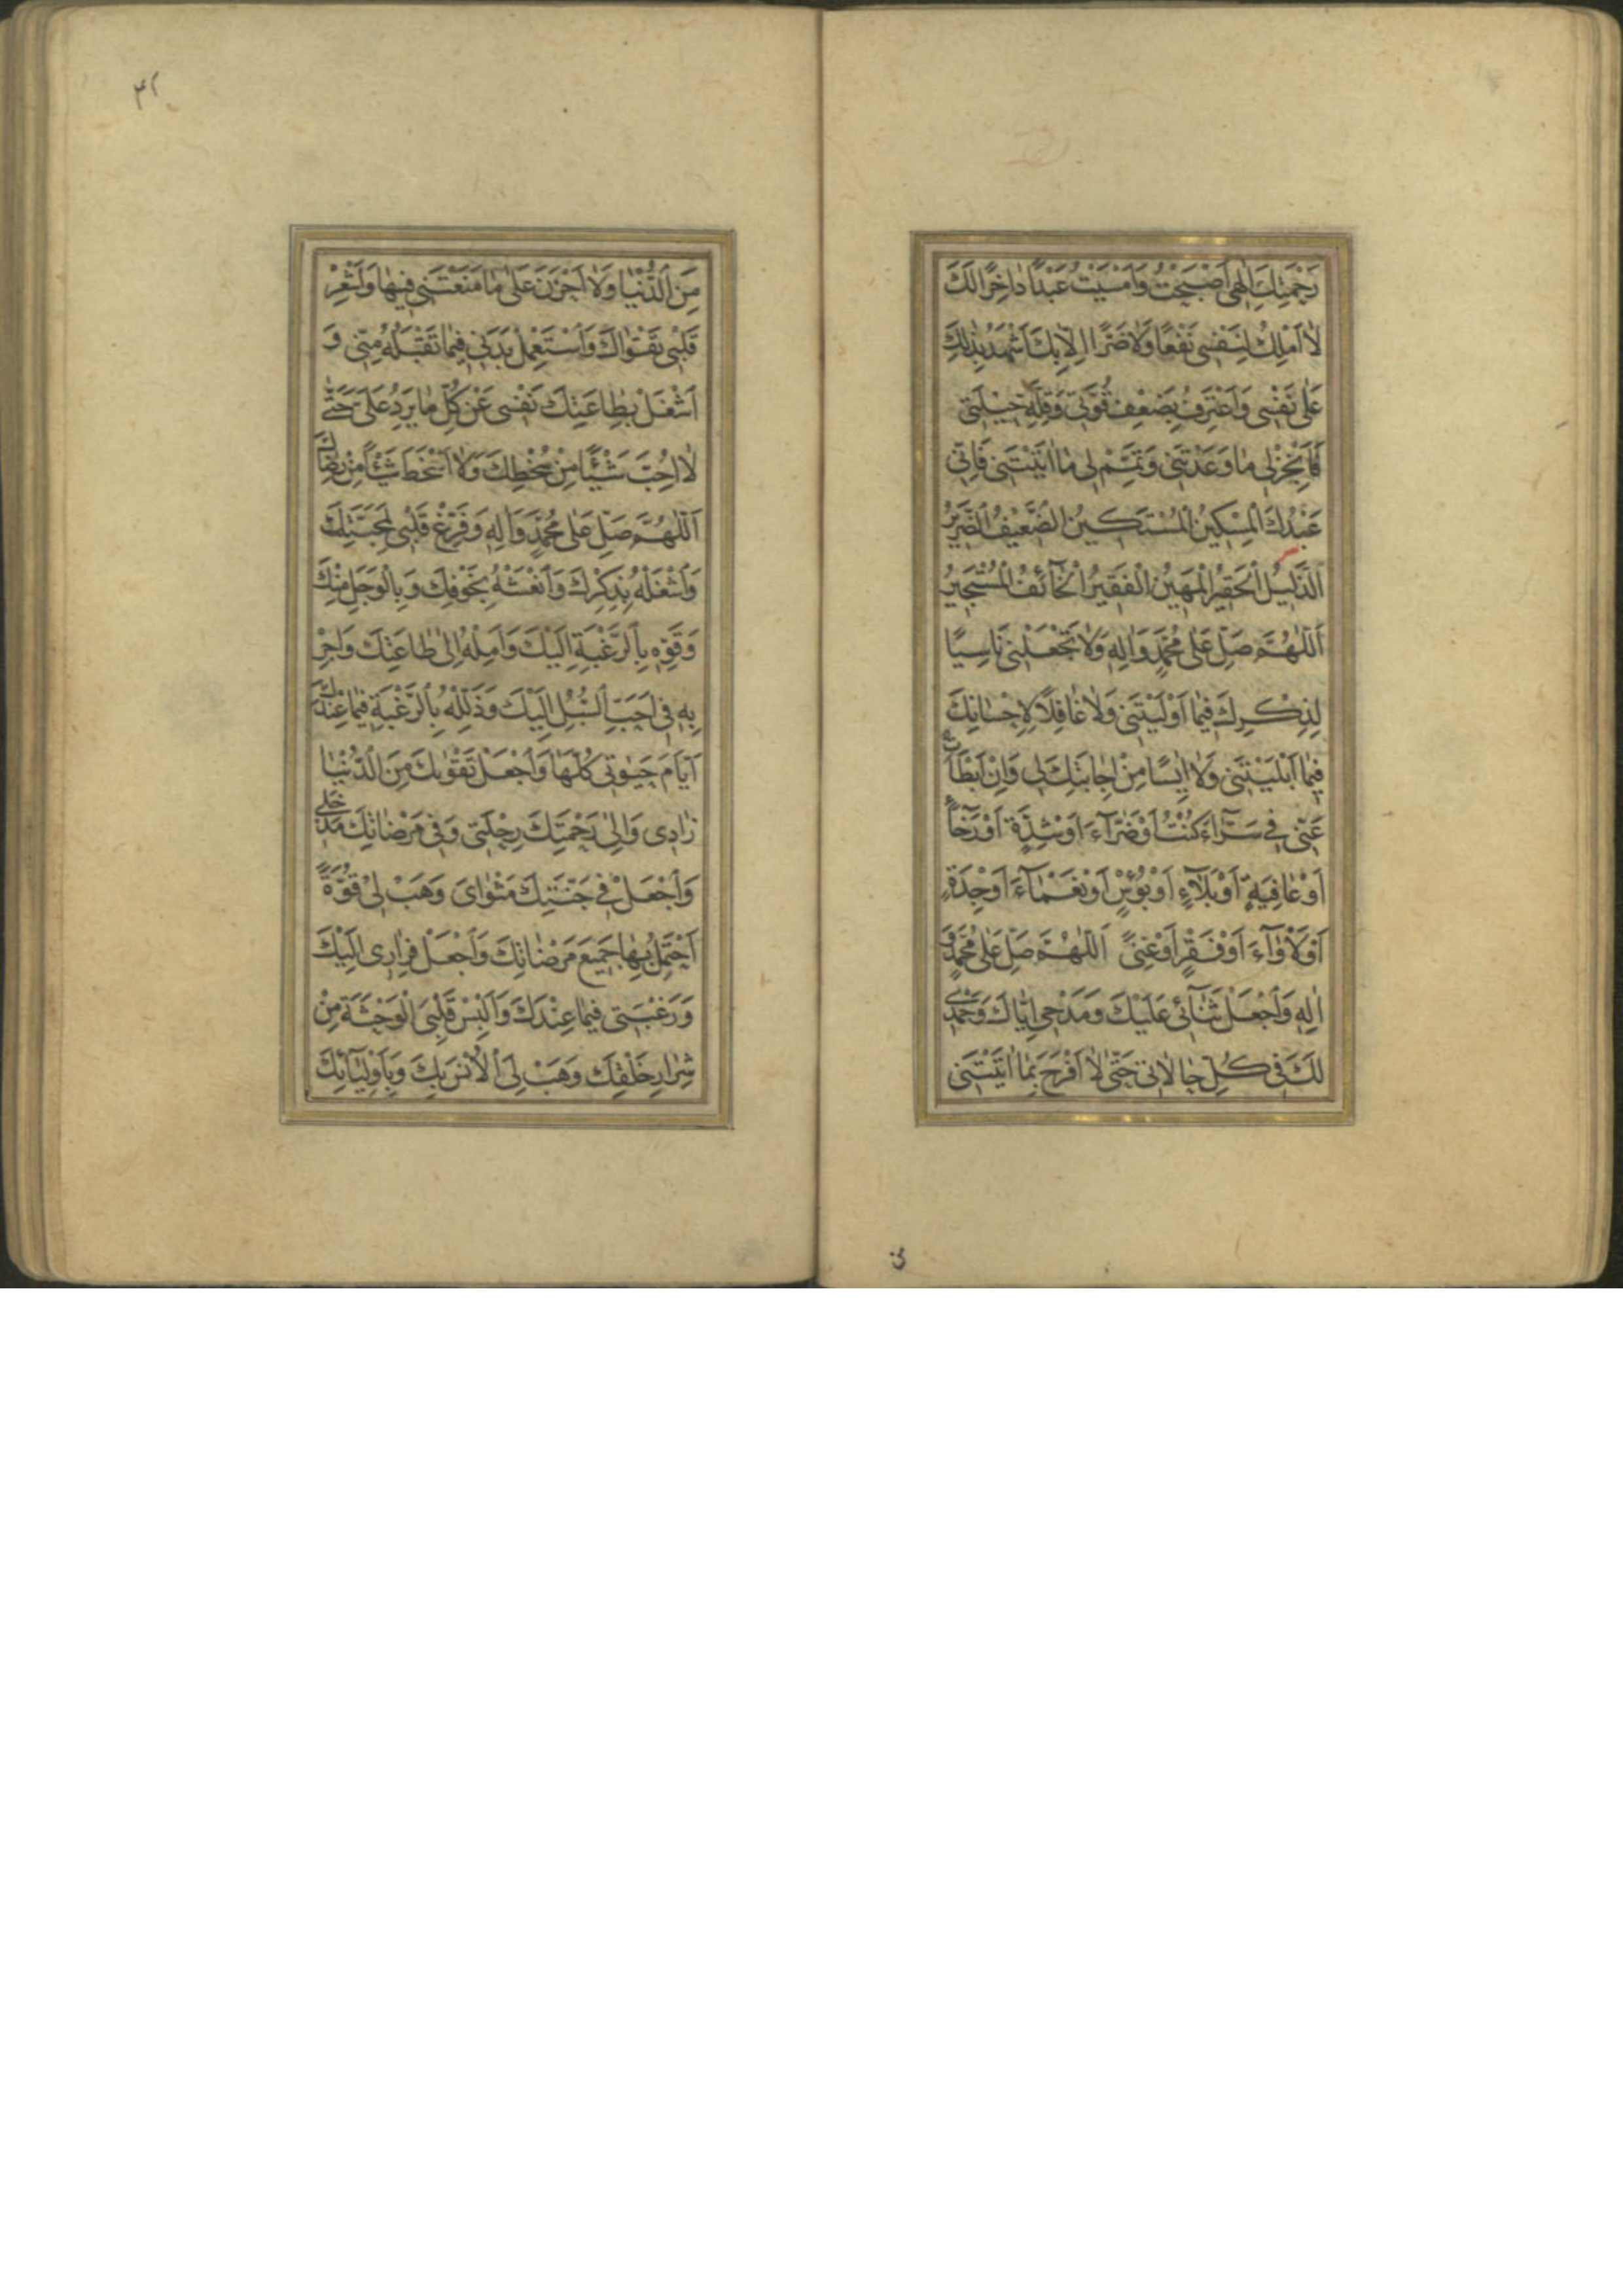 رَحْمَتِكَ اِلٰهِى اَصْبَحْتُ وَاَمْسَيْتُ عَبْدًا دٰاخِرًا لَكَ
لٰا اَمْلِكُ لِنَفْسِى نَفْعًا وَلٰا ضَرًّا اِلّٰا بِكَ اَشْهَدُ بِذٰلِكَ
عَلٰى نَفْسِى وَاَعْتَرِفُ بِضَعْفِ قُوَّتِى وَقِلَّةِ حِيْلَتِى
فَاَنْجِزْ لِى مٰا وَعَدْتَنِى وَتَمِّمْ لِى مٰا اٰتَيْتَنِى فَاِنِّى
عَبْدُكَ الْمِسْكِينُ الْمُسْتَكِينُ الضَّعِيفُ الضَّرِيرُ
اَلذَّلِيلُ الْحَقِيرُ الْمَهِينُ الْفَقِيرُ الْخَآئِفُ الْمُسْتَجِيرُ
اَللّٰهُمَّ صَلِّ عَلٰى مُحَمَّدٍ وَاٰلِهِ وَلٰا تَجْعَلْنِى نَاسِيًا
لِذِكْرِكَ فِيمٰا اَوْلَيْتَنِى وَلٰا غٰافِلًا لِاِحْسٰانِكَ
فِيمٰا اَبْلَيْتَنِى وَلٰا اٰيِسًا مِنْ اِجٰابَتِكَ لِى وَاِنْ اَبْطَاَتْ
عَنِّى فِى سَرَّآءَ كُنْتُ اَوْ ضَرَّآءَ اَوْ شِدَّةٍ اَوْ رَخَآءٍ
اَوْ عٰافِيَةٍ اَوْ بَلَآءٍ اَوْ بُؤْسٍ اَوْ نَعْمَآءَ اَوْ جِدَةٍ
اَوْ لَاْوَآءَ اَوْ فَقْرٍ اَوْ غِنًى اَللّٰهُمَّ صَلِّ عَلٰى مُحَمَّدٍ وَ
اٰلِهِ وَاجْعَلْ ثَنَآئِى عَلَيْكَ وَمَدْحِى اِيّٰاكَ وَحَمْدِى
لَكَ فِى كُلِّ حٰالٰاتِى حَتّٰى لٰا اَفْرَحَ بِمٰا اٰتَيْتَنِى
مِنَ الدُّنْيٰا وَلٰا اَحْزَنَ عَلٰى مٰا مَنَعْتَنِى فِيهٰا وَاَشْعِرْ
قَلْبِى تَقْوٰاكَ وَاسْتَعْمِلْ بَدَنِى فِيمٰا تَقْبَلُهُ مِنِّى وَ
اَشْغَلْ بِطٰاعَتِكَ نَفْسِى عَنْ كُلِّ مٰا يَرِدُ عَلَىَّ حَتّٰى
لٰا اُحِبَّ شَيْئًا مِنْ سُخْطِكَ وَلٰا اَسْخَطَ شَيْئًا مِنْ رِضٰاكَ
اَللّٰهُمَّ صَلِّ عَلٰى مُحَمَّدٍ وَاٰلِهِ وَفَرِّغْ قَلْبِى لِمَحَبَّتِكَ
وَاشْغَلْهُ بِذِكْرِكَ وَانْعَشْهُ بِخَوْفِكَ وَبِالْوَجَلِ مِنْكَ
وَقَوِّهِ بِالرَّغْبَةِ اِلَيْكَ وَاَمِلْهُ اِلٰى طٰاعَتِكَ وَاَجْرِ
بِهِ فِى اَحَبِّ السُّبُلِ اِلَيْكَ وَذَلِّلْهُ بِالرَّغْبَةِ فِيمٰا عِنْدَكَ
اَيّٰامَ حَيٰوتِى كُلِّهٰا وَاجْعَلْ تَقْوٰيكَ مِنَ الدُّنْيٰا
زٰادِى وَاِلٰى رَحْمَتِكَ رِحْلَتِى وَفِى مَرْضٰاتِكَ مَدْخَلِى
وَاجْعَلْ فِى جَنَّتِكَ مَثْوٰاىَ وَهَبْ لِى قُوَّةً
اَحْتَمِلُ بِهٰا جَمِيعَ مَرْضٰاتِكَ وَاجْعَلْ فِرٰارِى اِلَيْكَ
وَرَغْبَتِى فِيمٰا عِنْدَكَ وَاَلْبِسْ قَلْبِىَ الْوَحْشَةَ مِنْ
شِرٰارِ خَلْقِكَ وَهَبْ لِىَ الْاُنْسَ بِكَ وَبِاَوْلِيَآئِكَ